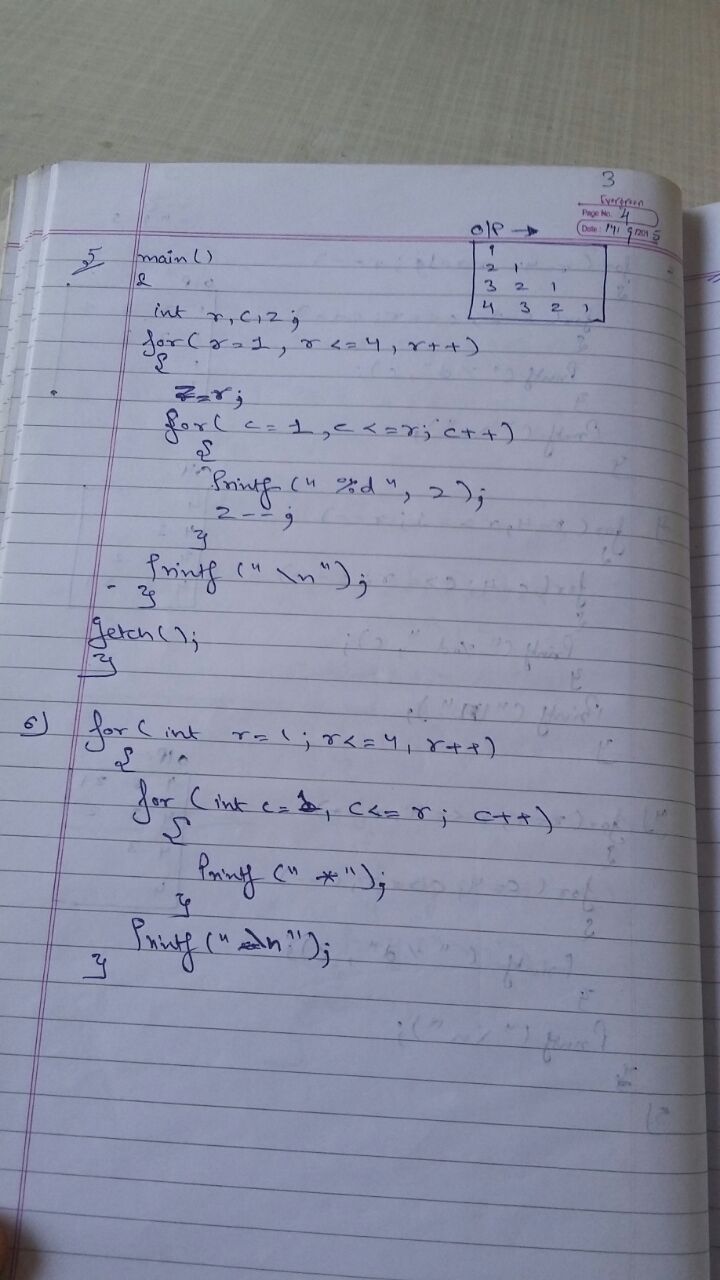 3
Evergreen
Page No. 4
Date: 14/ 9/2015
O/P →
1
2 1
3 2 1
4 3 2 1
5 main()
{
int r, c, z;
for( r=1, r<=4, r++)
{
z=r;
for( c=1, c<=r; c++)
{
Printf (" %d ", z);
z--;
}
Printf (" \n");
}
getch();
}
6) for( int r=1; r<=4, r++)
{
for (int c=1, c<=r; c++)
{
Printf (" *");
}
Printf (" \n");
}